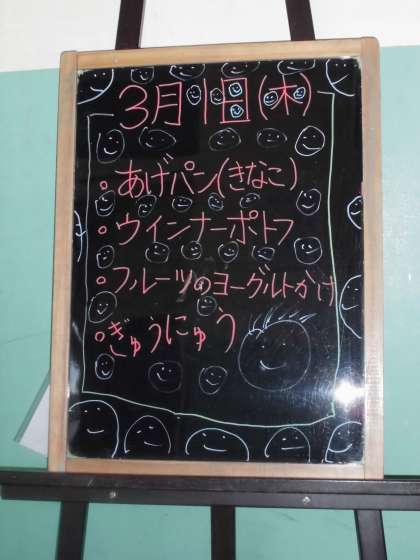 3月1日(木)
・あげパン(きなこ)
・ウインナーポトフ
・フルーツのヨーグルトかけ
・ぎゅうにゅう